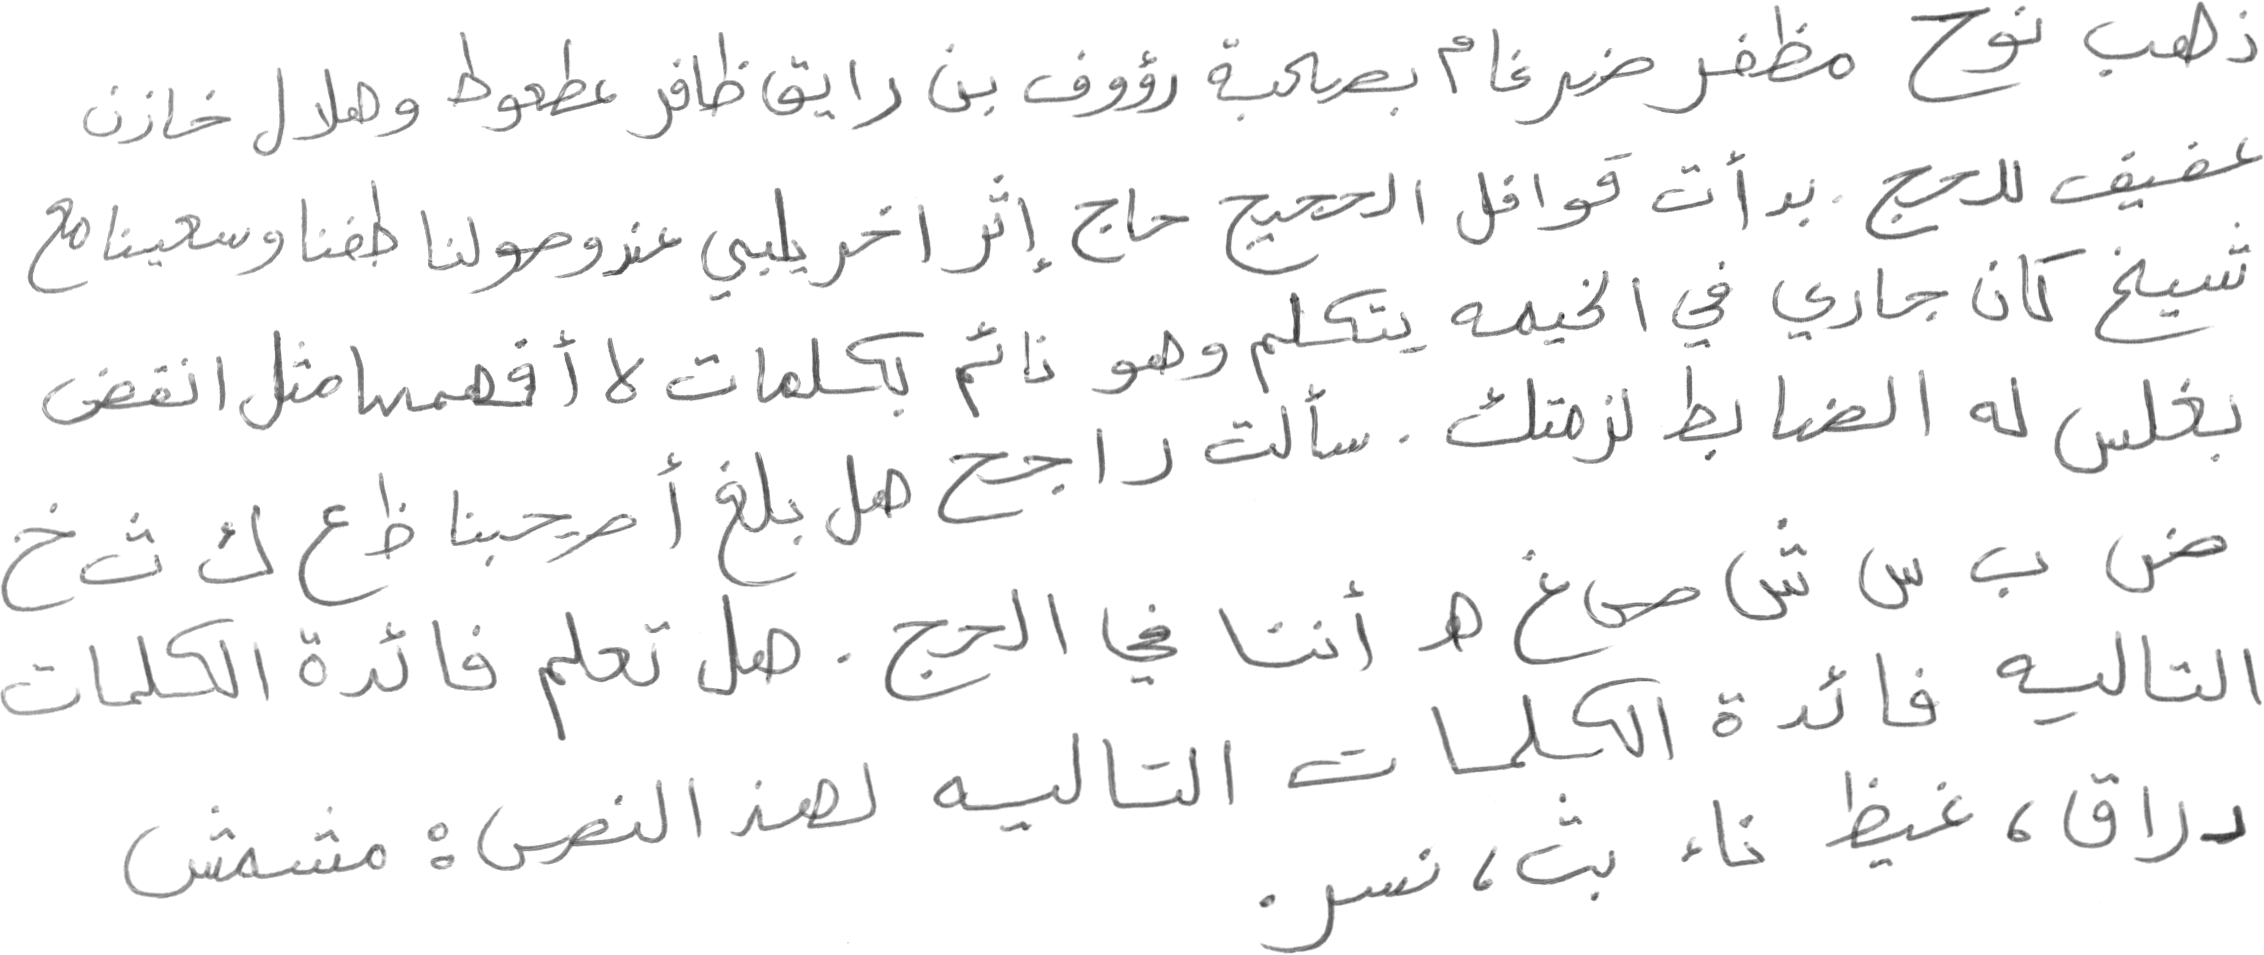 ذهب نوح مظفر ضرغام بصحبة رؤوف بن رايق ظافر عطعوط وهلال خازن
عفيف للحج. بدأت قوافل الحجيج حاج إثر اخر يلبي عند وصولنا طفنا وسعينا مع
شيخ كان جاري في الخيمه يتكلم وهو نائم بكلمات لا أفهمها مثل انقض
بغلس له الضابط لزمتك. سألت راجح هل بلغ أصيحبنا ظ ع ك ث خ
ض ب س ش ص غ ه أننا في الحج. هل تعلم فائدة الكلمات
التاليه فائدة الكلمات التاليه لهذ النص: مشمش
دراق، غيظ ناء بث، نسر.